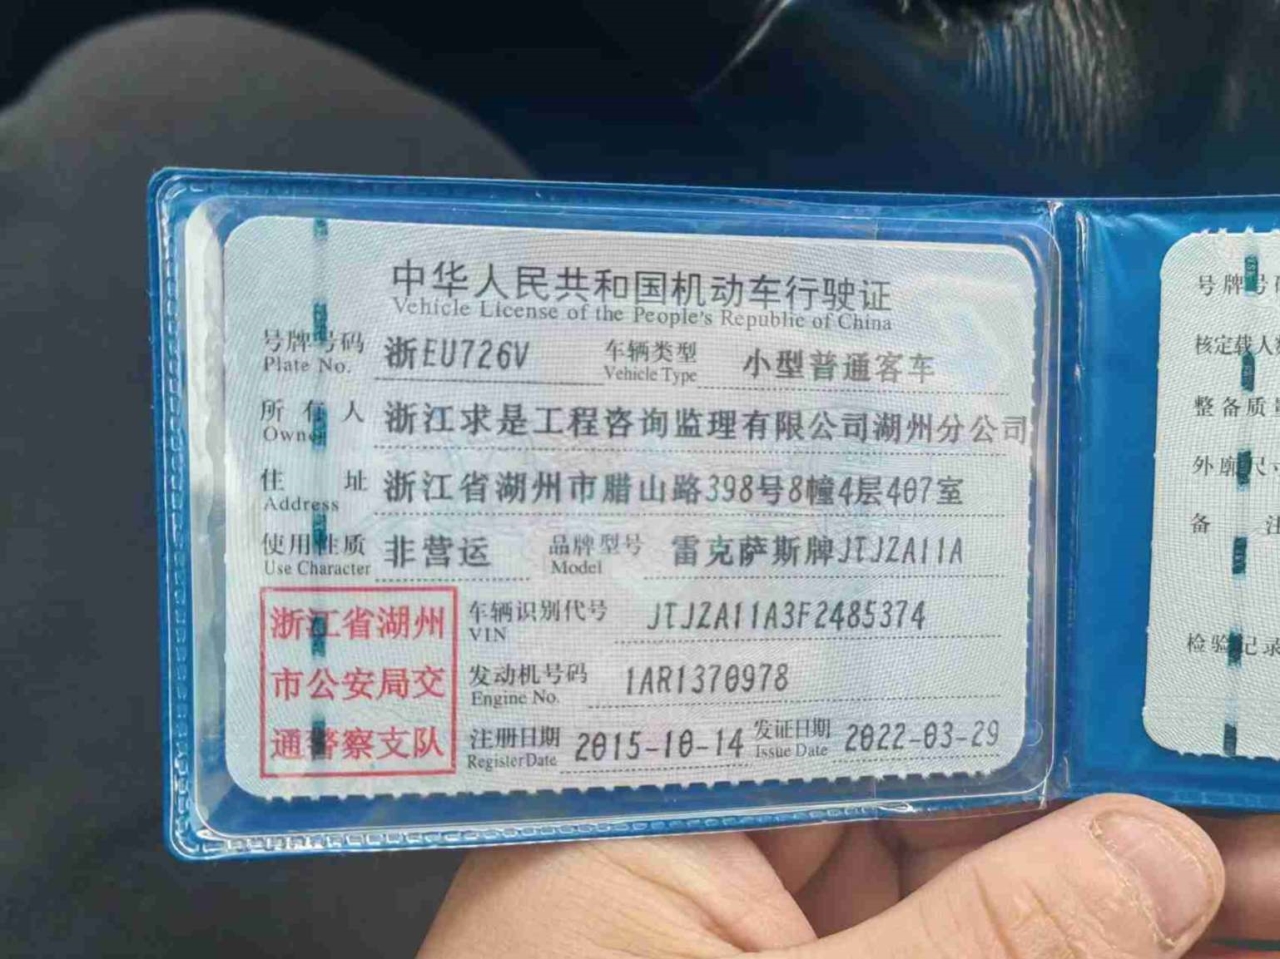 中华人民共和国机动车行驶证
Vehicle License of the People's Republic of China
号牌号码 浙EU726V 车辆类型 小型普通客车
Plate No. Vehicle Type
所有人 浙江求是工程咨询监理有限公司湖州分公司
Owner
住址 浙江省湖州市腊山路398号8幢4层407室
Address
使用性质 非营运 品牌型号 雷克萨斯牌JTJZA11A
Use Character Model
浙江省湖州
市公安局交
通警察支队
车辆识别代号 JTJZA11A3F2485374
VIN
发动机号码 1AR1370978
Engine No.
注册日期 2015-10-14 发证日期 2022-03-29
Register Date Issue Date
号牌号
核定载人
整备质
外廓尺
备 注
检验记录